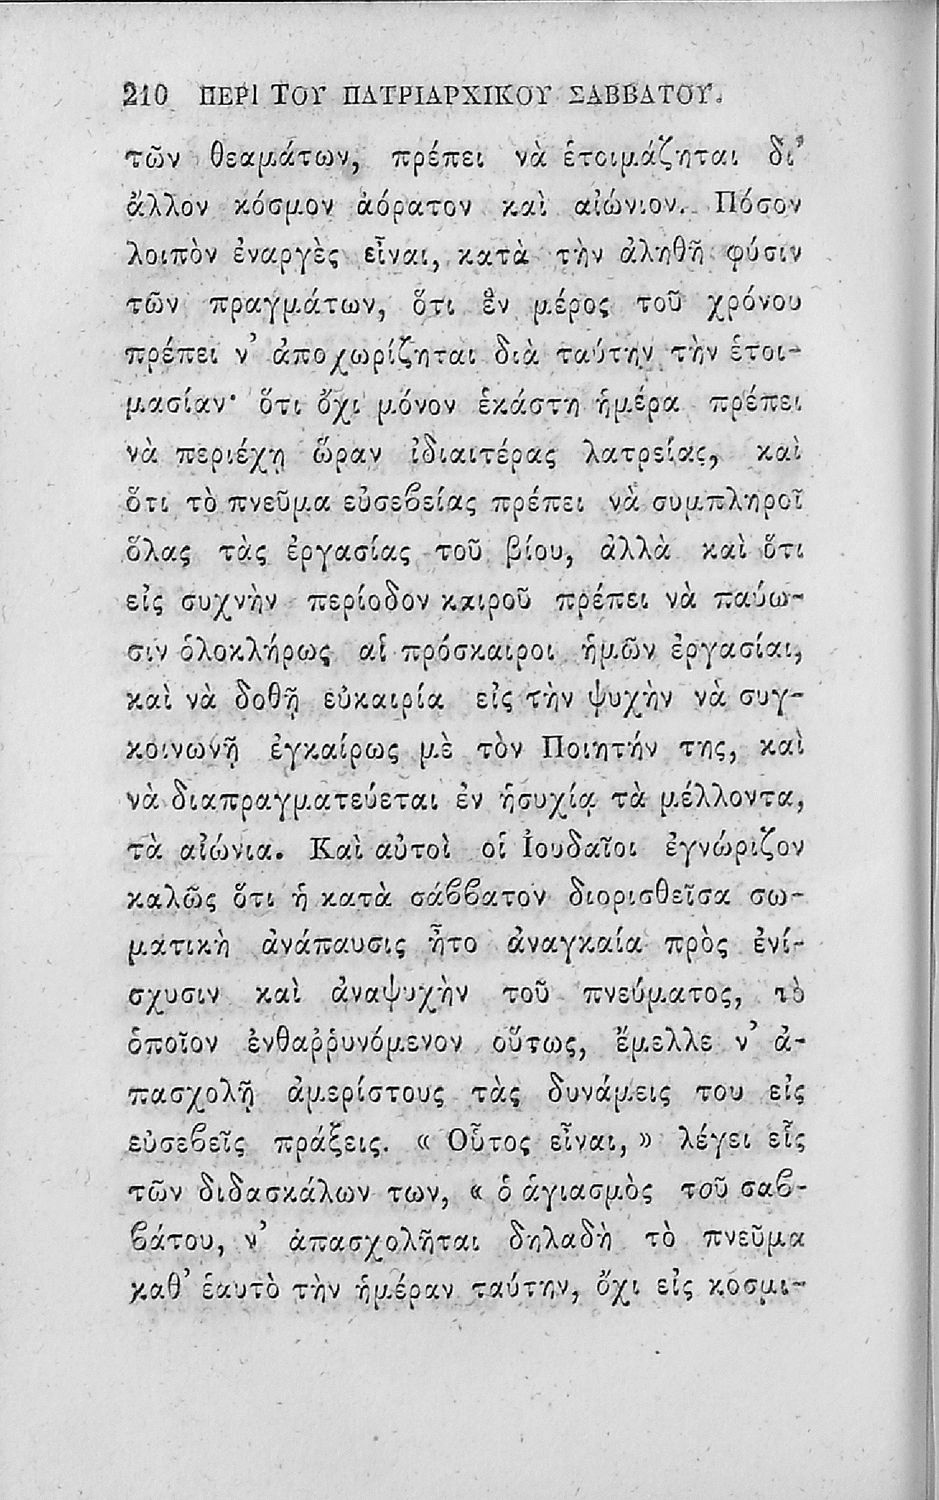 210 ΠΕΡΙ ΤΟΥ ΠΑΤΡΙΑΡΧΙΚΟΥ ΣΑΒΒΑΤΟΥ.
τῶν θεαμάτων, πρέπει νὰ ἑτοιμάζηται δι’
ἄλλον κόσμον ἀόρατον καὶ αἰώνιον. Πόσον
λοιπὸν ἐναργὲς εἶναι, κατὰ τὴν ἀληθῆ φύσιν
τῶν πραγμάτων, ὅτι ἓν μέρος τοῦ χρόνου
πρέπει ν’ ἀποχωρίζηται διὰ ταύτην τὴν ἑτοι-
μασίαν· ὅτι ὄχι μόνον ἑκάστη ἡμέρα πρέπει
νὰ περιέχῃ ὥραν ἰδιαιτέρας λατρείας, καὶ
ὅτι τὸ πνεῦμα εὐσεϐείας πρέπει νὰ συμπληροῖ
ὅλας τὰς ἐργασίας τοῦ βίου, ἀλλὰ καὶ ὅτι
εἰς συχνὴν περίοδον καιροῦ πρέπει νὰ παύω-
σιν ὁλοκλήρως αἱ πρόσκαιροι ἡμῶν ἐργασίαι,
καὶ νὰ δοθῇ εὐκαιρία εἰς τὴν ψυχὴν νὰ συγ-
κοινωνῇ ἐγκαίρως μὲ τὸν Ποιητήν της, καὶ
νὰ διαπραγματεύεται ἐν ἡσυχίᾳ τὰ μέλλοντα,
τὰ αἰώνια. Καὶ αὐτοὶ οἱ Ἰουδαῖοι ἐγνώριζον
καλῶς ὅτι ἡ κατὰ σάϐϐατον διορισθεῖσα σω-
ματικὴ ἀνάπαυσις ἦτο ἀναγκαία πρὸς ἐνί-
σχυσιν καὶ ἀναψυχὴν τοῦ πνεύματος, τὸ
ὁποῖον ἐνθαῤῥυνόμενον οὕτως, ἔμελλε ν’ ἀ-
πασχολῇ ἀμερίστους τὰς δυνάμεις του εἰς
εὐσεϐεῖς πράξεις. « Οὗτος εἶναι, » λέγει εἷς
τῶν διδασκάλων των, « ὁ ἁγιασμὸς τοῦ σαϐ-
ϐάτου, ν’ ἀπασχολῆται δηλαδὴ τὸ πνεῦμα
καθ’ ἑαυτὸ τὴν ἡμέραν ταύτην, ὄχι εἰς κοσμι-